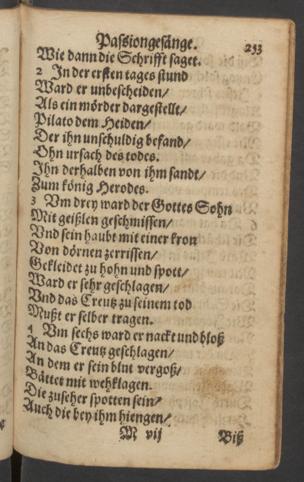 Passiongesänge. 233
Wie dann die Schrifft saget.
2 In der ersten tages stund
Ward er unbescheiden/
Als ein mörder dargestellt/
Pilato dem Heiden/
Der ihn unschuldig befand/
Ohn ursach des todes.
Ihn derhalben von ihm sandt/
Zum könig Herodes.
3 Vm drey ward der Gottes Sohn
Mit geißlen geschmissen/
Vnd sein haubt mit einer kron
Von dörnen zerrissen/
Gekleidet zu hohn und spott/
Ward er sehr geschlagen/
Vnd das Creutz zu seinem tod
Mußt er selber tragen.
4 Vm sechs ward er nackt und bloß
An das Creutz geschlagen/
An dem er sein blut vergoß/
Bättet mit wehklagen.
Die zuseher spotten sein/
Auch die bey ihm hiengen/
M vij Biß